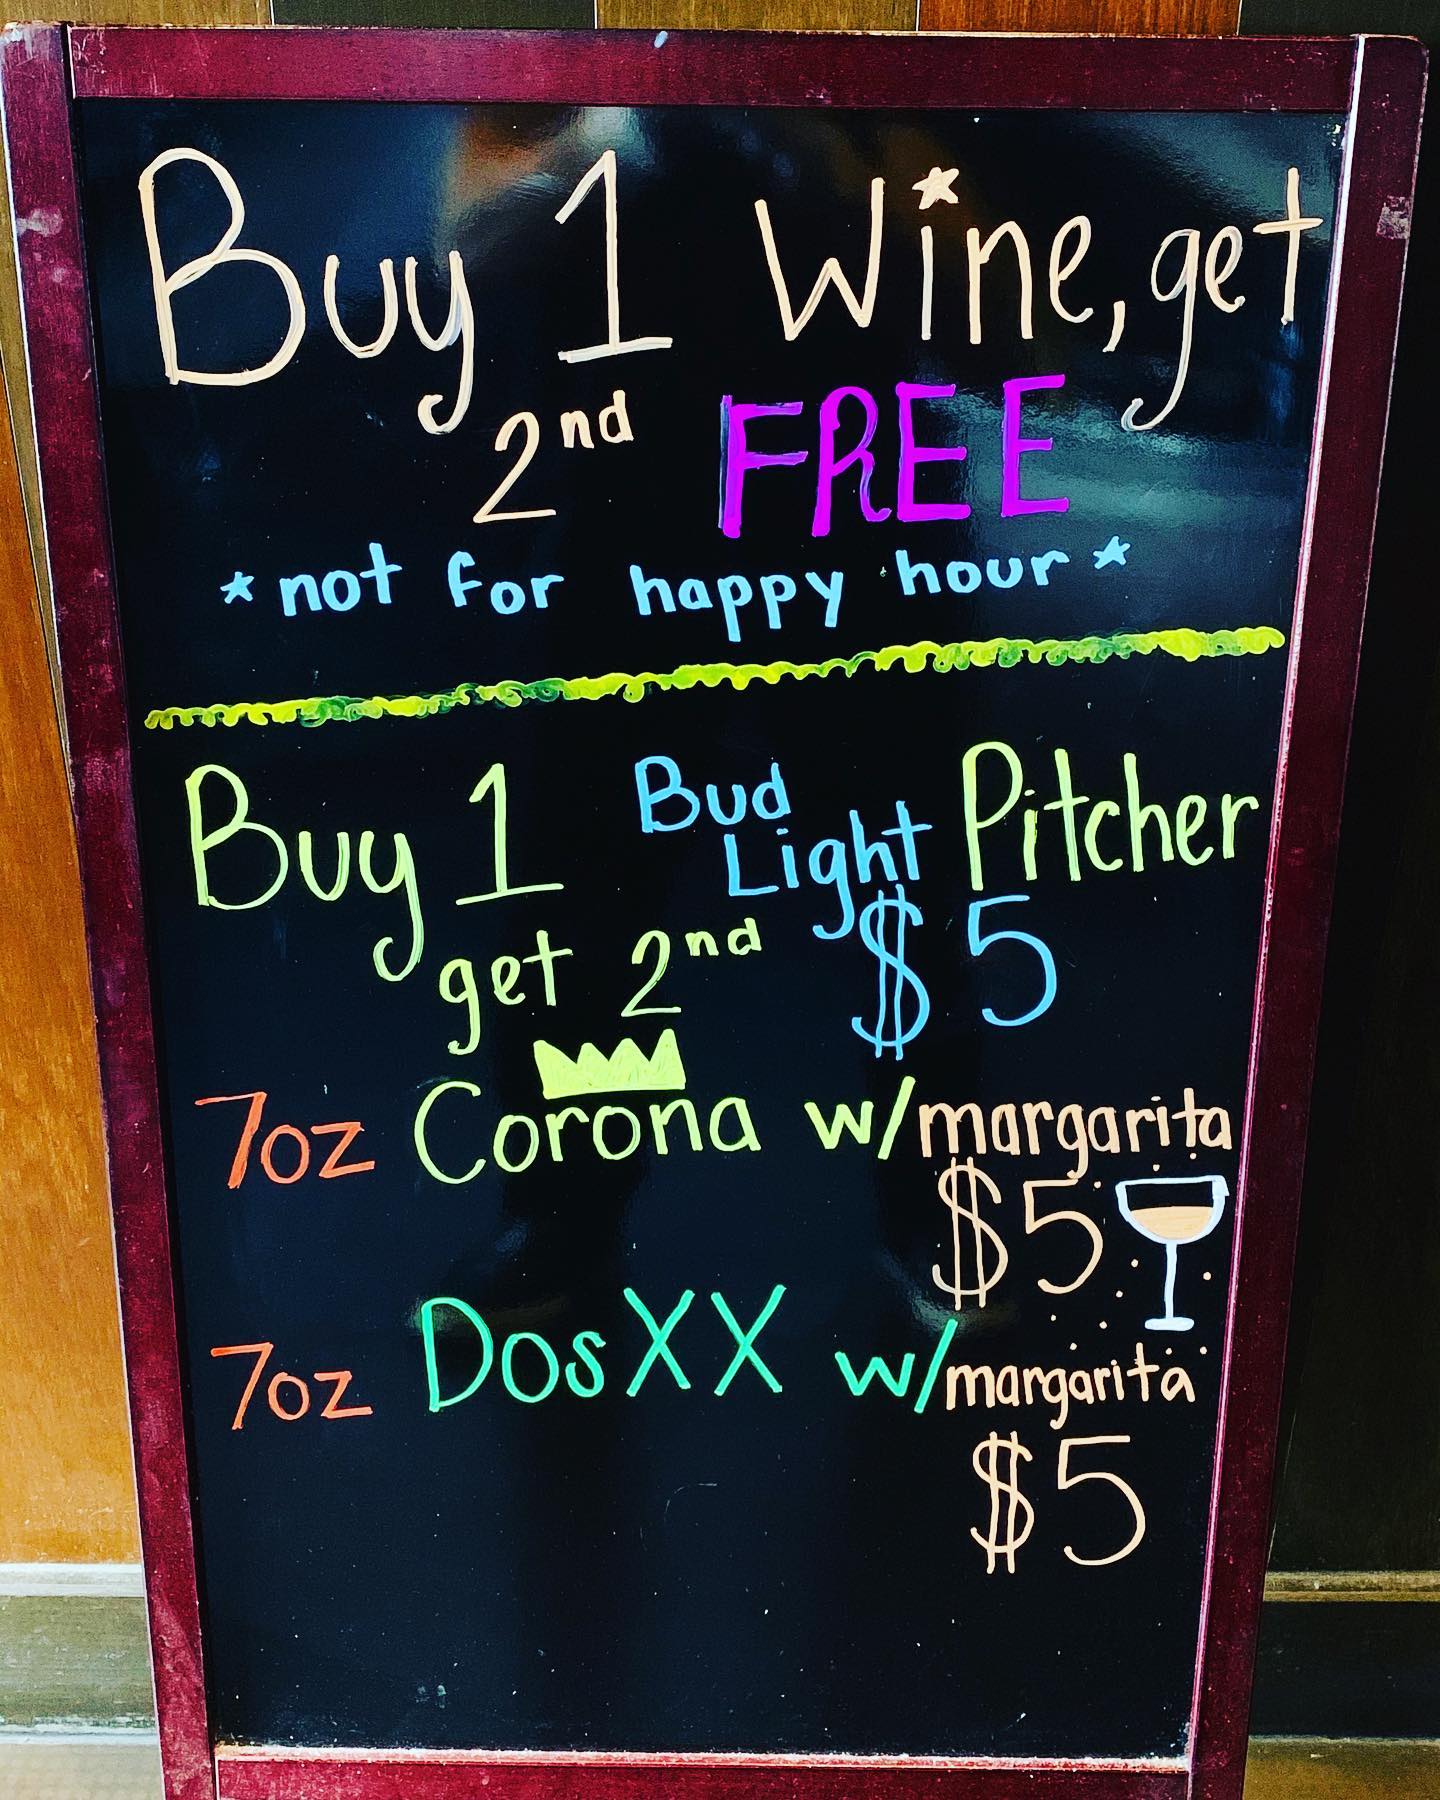 Buy 1 Wine, get
2nd FREE
*not for happy hour*
Buy 1 Bud Light Pitcher
get 2nd $5
7oz Corona w/margarita
$5
7oz DosXX w/margarita
$5